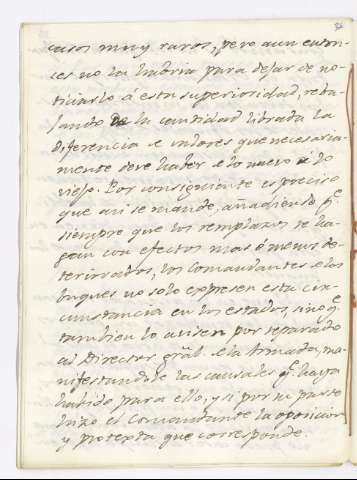 36
casos muy raros, pero aun enton-
ces no la habria para dejar de no-
ticiarlo á esta superioridad, reba-
jando de la cantidad librada la
diferencia de valores que necesaria-
mente deve haber de lo nuevo á lo
viejo. Por consiguiente es preciso
que asi se mande, añadiendo q.e
siempre que los remplazos se ha-
gan con efectos mas ó menos de-
teriorados, los Comandantes de los
buques no solo expresen esta cir-
cunstancia en los estados, sino q.e
tambien lo avisen por separado
al Director gral. de la Armada, ma-
nifestandole las causales q.e haya
habido para ello, y si por su parte
hizo el Comandante la oposicion
y protexta que corresponde.